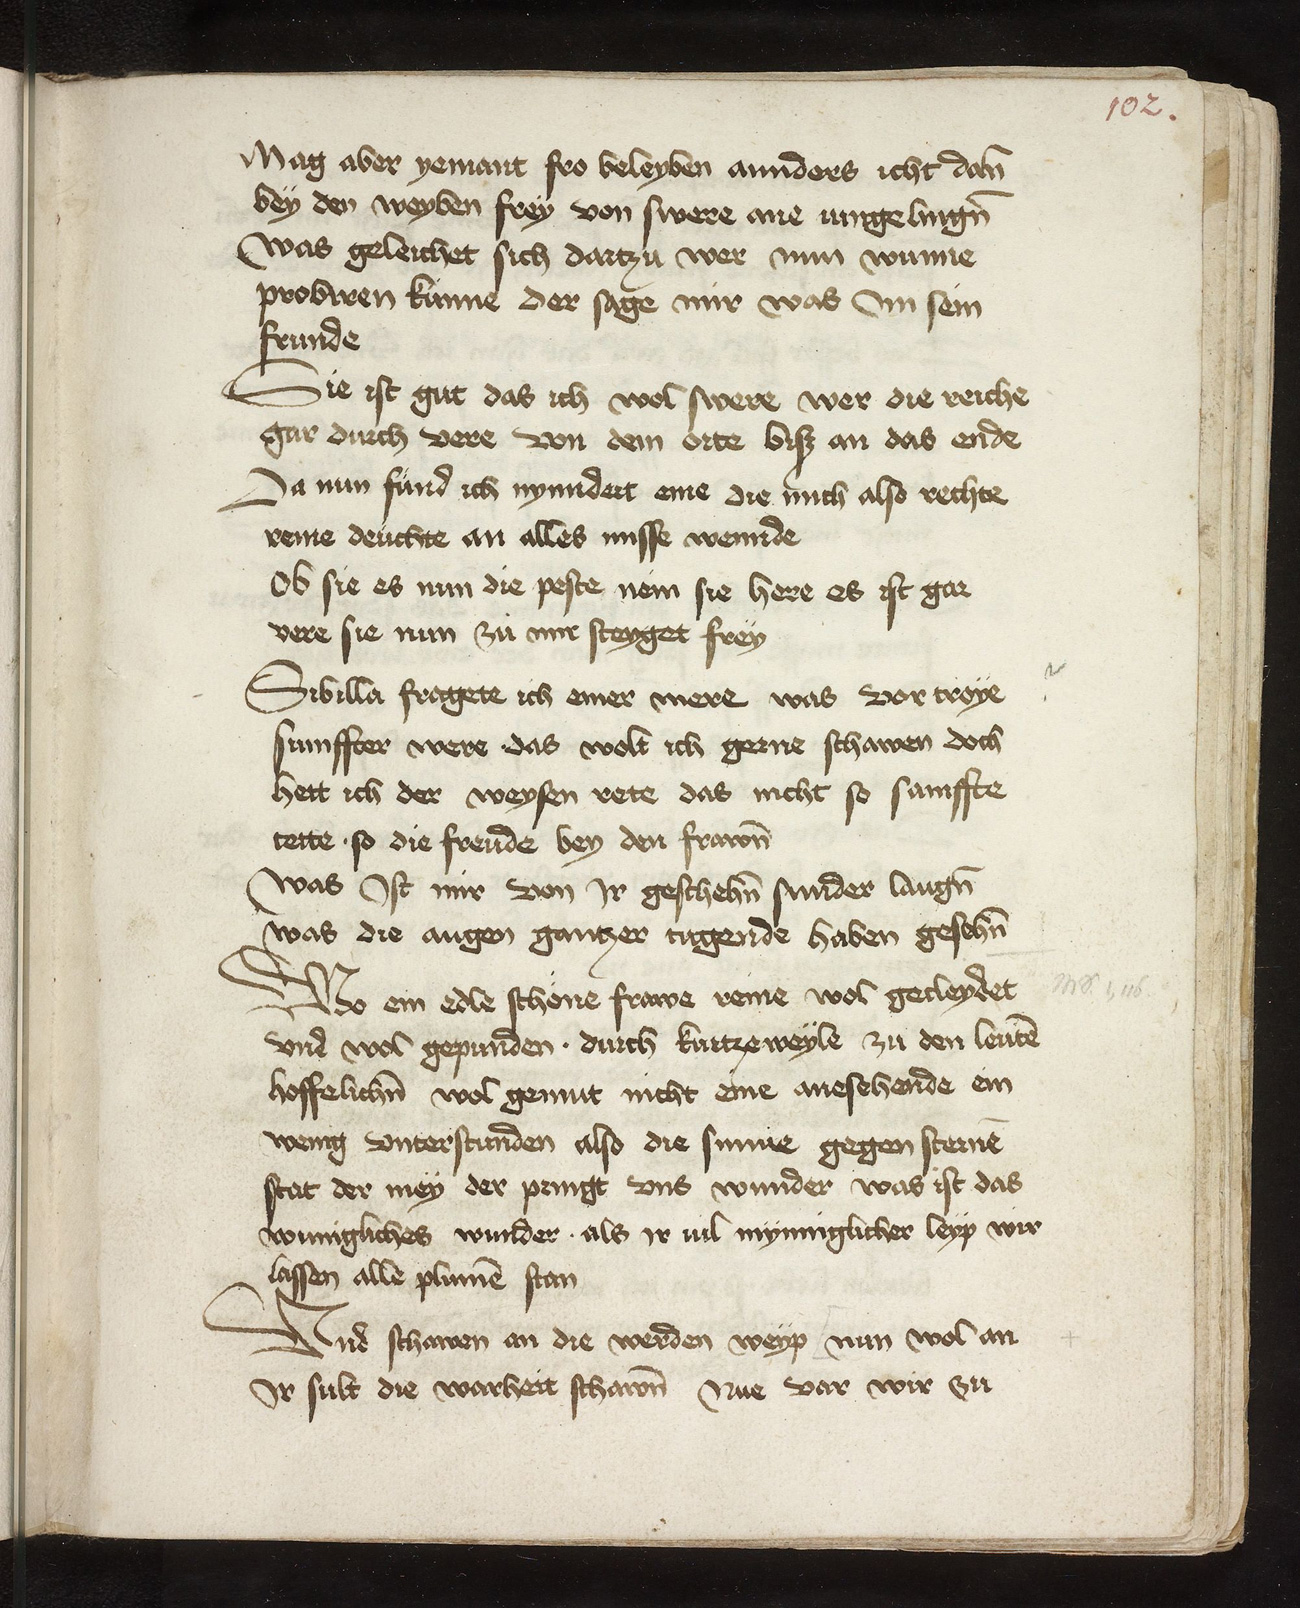 102.
Mag aber yemant fro beleyben annders icht dan̄
bey den weyben frey von swere ane vngelingn̄
Was geleichet sich dartzu wer nun wunne
probiren kunne der sage mir was Im sein
frunde
Sie ist gut das ich wol swere wer die reiche
gar durch vere von dem orte bisz an das ende
Da nun fund ich nynndert eine die mich also rechte
reine deuchte an alles misse wennde
Ob sie es nun die peste nem sie here es ist gar
vere sie nun zu mir steyget frey
Sibilla fragete ich einer mere was vor troye
sunffter were das wolt ich gerne schawen doch
hett ich der weysen rete das nicht so sanffte
tette · so die freude bey den frawn̄
Was Ist mir von Ir geschehn̄ sunder laugn̄
was die augen gantzer tugende haben gesehn̄
Wo ein edle schöne frawe reine wol gecleydet
vnd wol gepunden · durch kurtzeweyle zu den leutē
hoffelichn̄ wol gemut nicht eine anesehende ein
wenig vnterstunden also die sunne gegen sternē
stat der mey der pringt vns wunder was ist das
wunigliches wunder · als ir vil mynniglicher leyp wir
lassen alle plumē stan
MS. 1, 116.
Vnd schawen an die werden weyp nun wol an
Ir sult die warheit schawn̄ Nue var wir zu